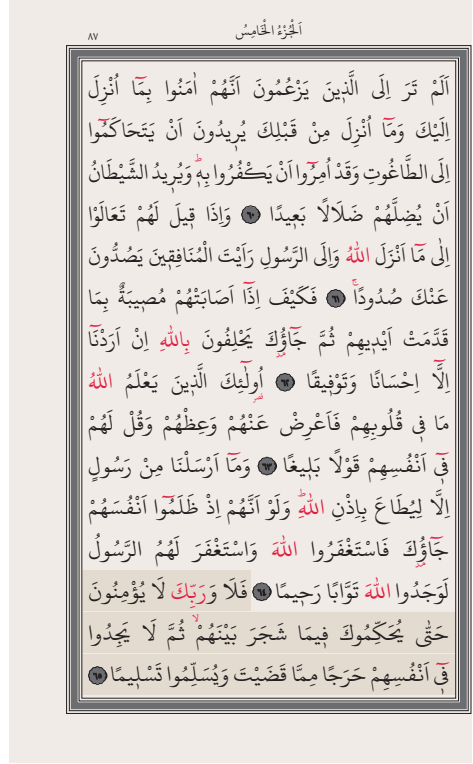 اَلْجُزْءُ الْخَامِسُ
٨٧
اَلَمْ تَرَ اِلَى الَّذ۪ينَ يَزْعُمُونَ اَنَّهُمْ اٰمَنُوا بِمَٓا اُنْزِلَ
اِلَيْكَ وَمَٓا اُنْزِلَ مِنْ قَبْلِكَ يُر۪يدُونَ اَنْ يَتَحَاكَمُٓوا
اِلَى الطَّاغُوتِ وَقَدْ اُمِرُٓوا اَنْ يَكْفُرُوا بِه۪ۜ وَيُر۪يدُ الشَّيْطَانُ
اَنْ يُضِلَّهُمْ ضَلَالًا بَع۪يدًا ﴿٦٠﴾ وَاِذَا ق۪يلَ لَهُمْ تَعَالَوْا
اِلٰى مَٓا اَنْزَلَ اللّٰهُ وَاِلَى الرَّسُولِ رَاَيْتَ الْمُنَافِق۪ينَ يَصُدُّونَ
عَنْكَ صُدُودًاۚ ﴿٦١﴾ فَكَيْفَ اِذَٓا اَصَابَتْهُمْ مُص۪يبَةٌ بِمَا
قَدَّمَتْ اَيْد۪يهِمْ ثُمَّ جَٓاؤُ۫كَ يَحْلِفُونَ بِاللّٰهِ اِنْ اَرَدْنَٓا
اِلَّٓا اِحْسَانًا وَتَوْف۪يقًا ﴿٦٢﴾ اُو۬لٰٓئِكَ الَّذ۪ينَ يَعْلَمُ اللّٰهُ
مَا ف۪ي قُلُوبِهِمْ فَاَعْرِضْ عَنْهُمْ وَعِظْهُمْ وَقُلْ لَهُمْ
ف۪ٓي اَنْفُسِهِمْ قَوْلًا بَل۪يغًا ﴿٦٣﴾ وَمَٓا اَرْسَلْنَا مِنْ رَسُولٍ
اِلَّا لِيُطَاعَ بِاِذْنِ اللّٰهِۜ وَلَوْ اَنَّهُمْ اِذْ ظَلَمُٓوا اَنْفُسَهُمْ
جَٓاؤُ۫كَ فَاسْتَغْفَرُوا اللّٰهَ وَاسْتَغْفَرَ لَهُمُ الرَّسُولُ
لَوَجَدُوا اللّٰهَ تَوَّابًا رَح۪يمًا ﴿٦٤﴾ فَلَا وَرَبِّكَ لَا يُؤْمِنُونَ
حَتّٰى يُحَكِّمُوكَ ف۪يمَا شَجَرَ بَيْنَهُمْۙ ثُمَّ لَا يَجِدُوا
ف۪ٓي اَنْفُسِهِمْ حَرَجًا مِمَّا قَضَيْتَ وَيُسَلِّمُوا تَسْل۪يمًا ﴿٦٥﴾